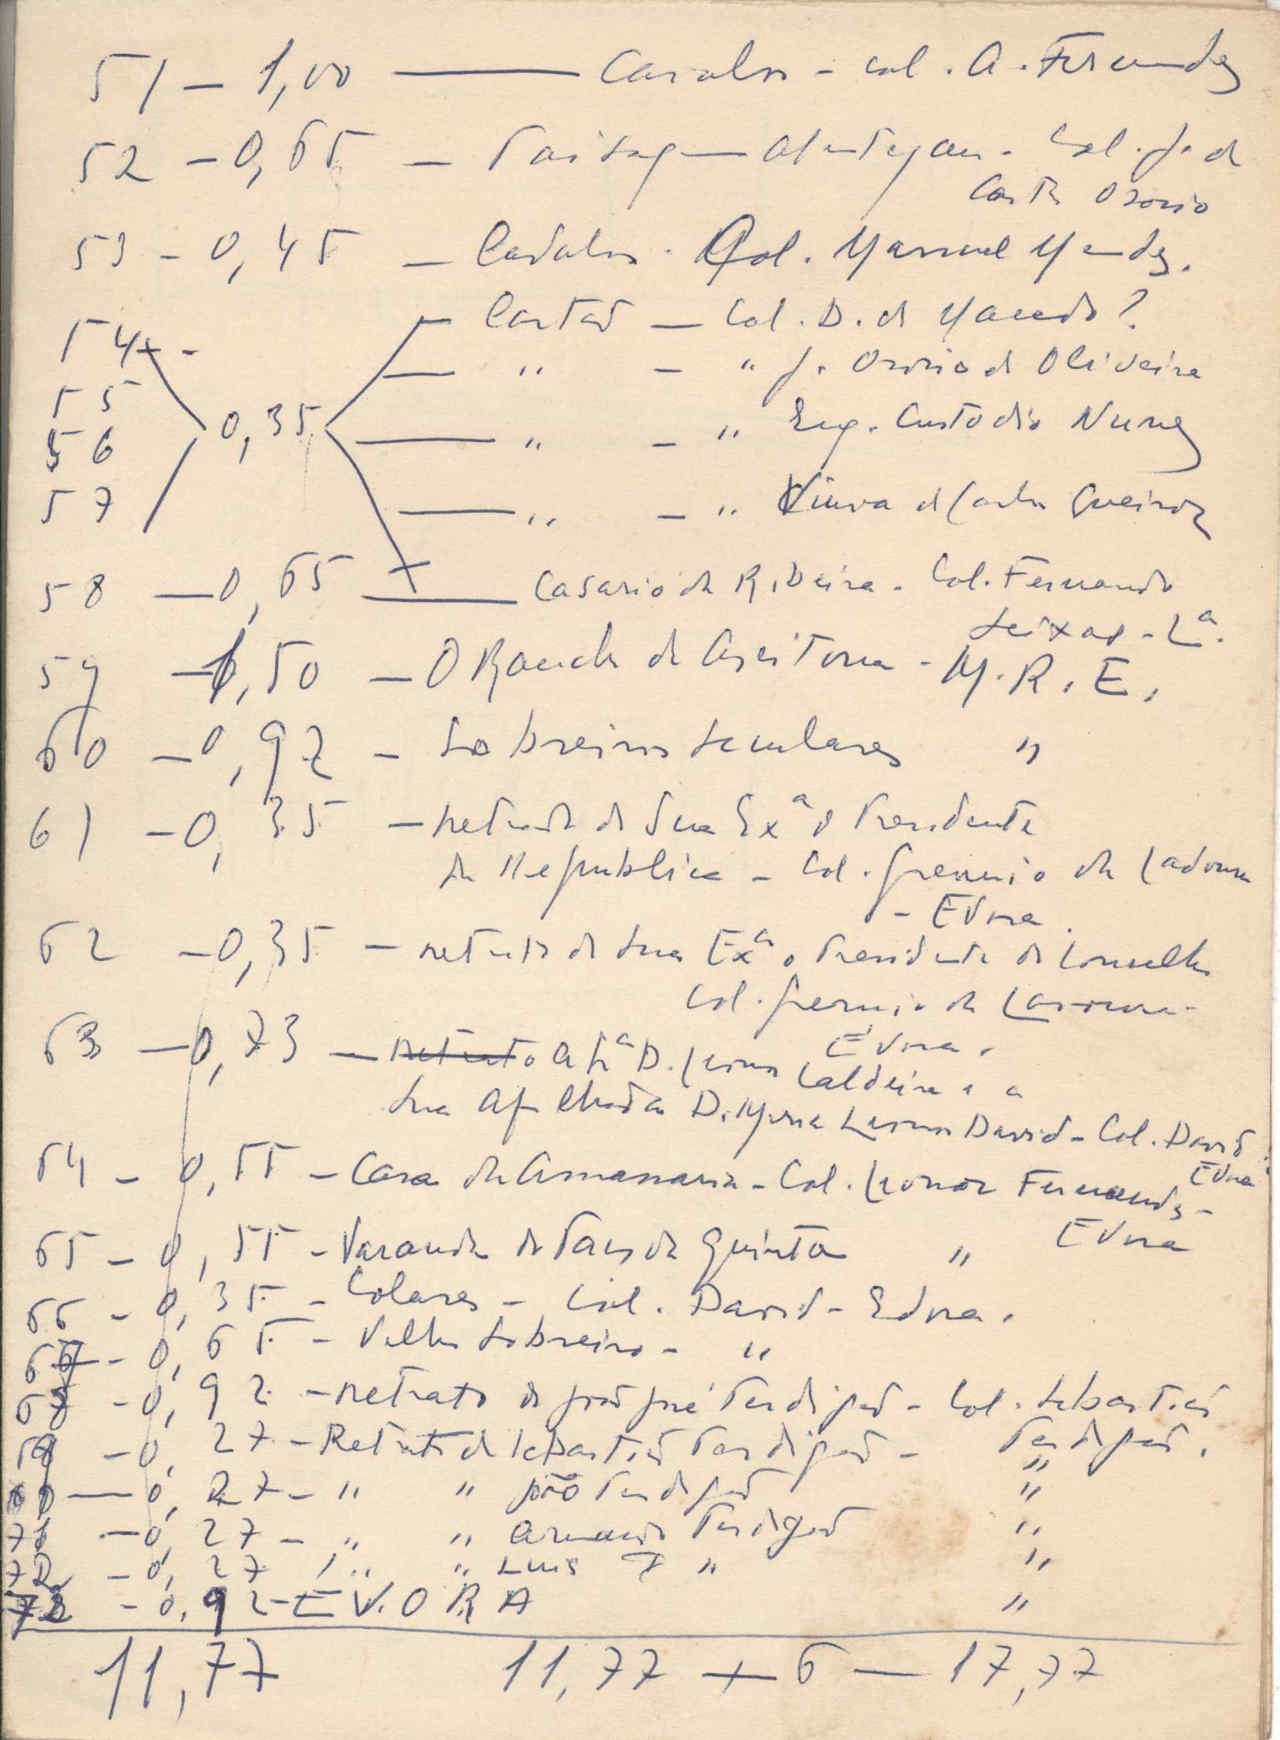 51 — 1,00 — Cavalos - Col. A. Fernandes
52 — 0,65 — Paisagem Alentejana - Col. J. de
Castro Osorio
53 — 0,45 — Cavalos - Col. Manuel Mendes.
54 - — Cartas — Col. D. de Macedo?
55 — " — " J. Osorio de Oliveira
56 0,35 — " — " Eng. Custodio Nunes
57 — " — " Viuva de Carlos Queiroz
58 — 0,65 — Casario da Ribeira - Col. Fernando
Seixas - Lª.
59 — 1,50 — O Rancho da Azeitona - M. R. E.
60 — 0,92 — Sobreiros Seculares "
61 — 0,35 — retrato de Sua Exª o Presidente
da Republica - Col. Gremio da Lavoura
- Evora.
62 — 0,35 — retrato de Sua Exª o Presidente do Conselho
Col. Gremio da Lavoura -
Evora.
63 — 0,73 — retrato a Srª D. Leonor Caldeira e a
sua Afilhada D. Maria Leonor David - Col. David
Evora
64 — 0,55 — Casa da Amassaria - Col. Leonor Fernandes -
Evora
65 — 0,55 — Varanda do Paço da Quinta "
66 — 0,35 — Colares - Col. David - Evora.
67 — 0,65 — Velho Sobreiro - "
68 — 0,92 — retrato de José Perdigão - Col. Sebastião
Perdigão.
69 — 0,27 — Retrato de Sebastião Perdigão - "
— 0,27 — " " João Perdigão "
71 — 0,27 — " " Armando Perdigão "
72 — 0,27 " " Luis "
73 — 0,92 — EVORA "
11,77 11,77 + 6 — 17,77